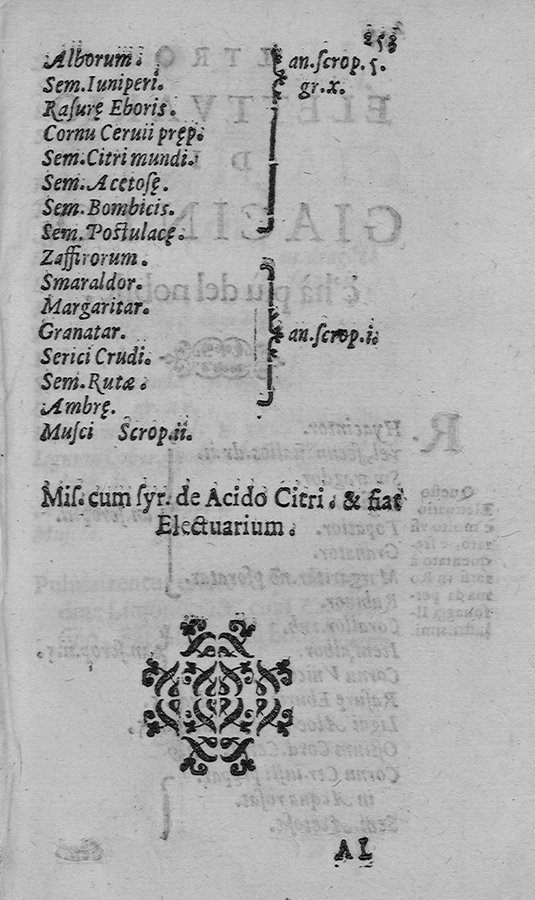 253
Alborum.
Sem. Iuniperi.
Rasurę Eboris.
Cornu Ceruii pręp.
Sem. Citri mundi.
Sem. Acetosę.
Sem. Bombicis.
Sem. Postulacę.
an. scrop. 5.
gr. x.
Zaffirorum.
Smaraldor.
Margaritar.
Granatar.
Serici Crudi.
Sem. Rutæ.
Ambrę.
an. scrop. i.
Musci Scrop. ii.
Mis. cum syr. de Acido Citri. & fiat
Electuarium.
AL